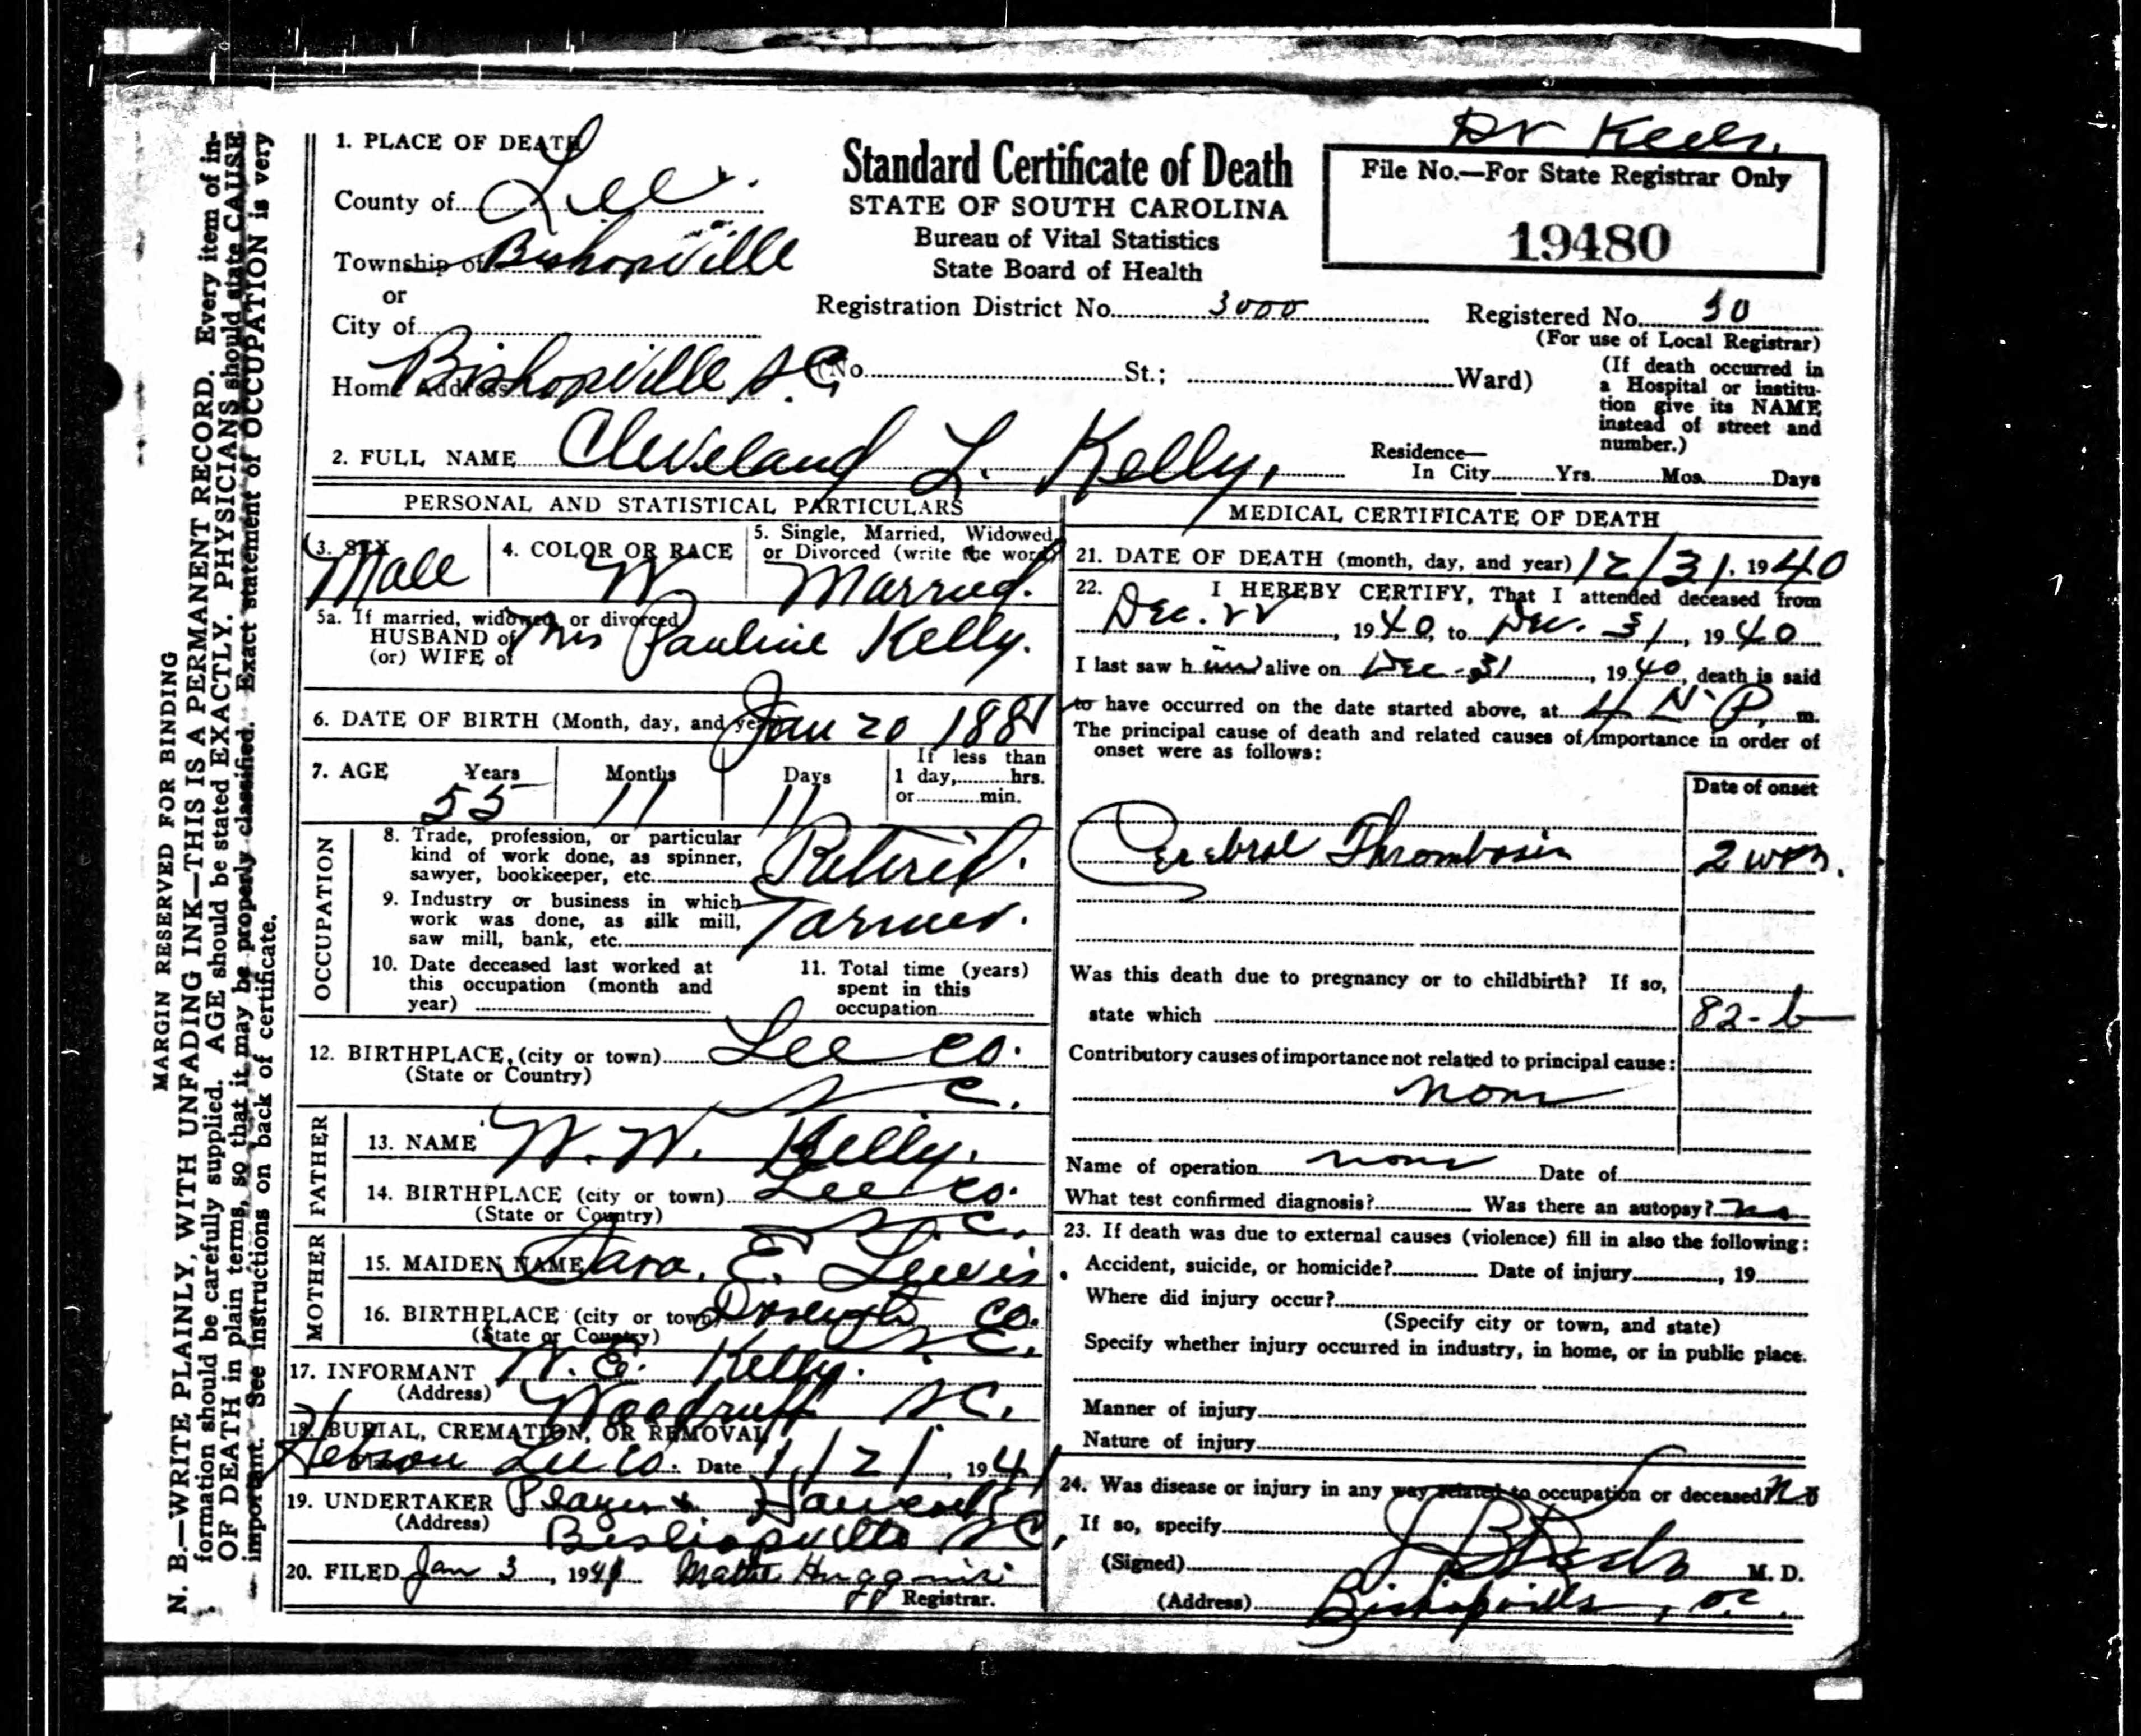 Dr Keels.
1. PLACE OF DEATH
County of Lee.
Township of Bishopville
or
City of
Home Address Bishopville S.C. (No. St.; Ward)
Standard Certificate of Death
STATE OF SOUTH CAROLINA
Bureau of Vital Statistics
State Board of Health
Registration District No. 3000
File No.—For State Registrar Only
19480
Registered No. 30
(For use of Local Registrar)
(If death occurred in
a Hospital or institu-
tion give its NAME
instead of street and
number.)
2. FULL NAME Cleveland L. Kelly,
Residence—
In City Yrs. Mos. Days
PERSONAL AND STATISTICAL PARTICULARS
3. SEX Male
4. COLOR OR RACE W
5. Single, Married, Widowed
or Divorced (write the word) Married.
5a. If married, widowed, or divorced
HUSBAND of Mrs Pauline Kelly.
(or) WIFE of
6. DATE OF BIRTH (Month, day, and year) Jan 20 188
7. AGE Years Months Days
55 11 11
If less than
1 day, hrs.
or min.
OCCUPATION
8. Trade, profession, or particular
kind of work done, as spinner,
sawyer, bookkeeper, etc. Retired.
9. Industry or business in which
work was done, as silk mill,
saw mill, bank, etc. Farmer.
10. Date deceased last worked at
this occupation (month and
year)
11. Total time (years)
spent in this
occupation
12. BIRTHPLACE, (city or town) Lee Co.
(State or Country) S C.
FATHER
13. NAME W. W. Kelly.
14. BIRTHPLACE (city or town) Lee Co.
(State or Country) S C.
MOTHER
15. MAIDEN NAME Sara. E. Lewis.
16. BIRTHPLACE (city or town) Co.
(State or Country) S C.
17. INFORMANT W. E. Kelly.
(Address) Woodruff S C.
18. BURIAL, CREMATION, OR REMOVAL
Hebron Lee Co. Date 1/2/, 1941
19. UNDERTAKER
(Address) Bishopville S C,
20. FILED Jan 3, 1941 Huggins
Registrar.
MEDICAL CERTIFICATE OF DEATH
21. DATE OF DEATH (month, day, and year) 12/31. 1940
22. I HEREBY CERTIFY, That I attended deceased from
Dec. 22, 1940, to Dec. 31, 1940
I last saw him alive on Dec-31, 1940, death is said
to have occurred on the date started above, at 4 P. m.
The principal cause of death and related causes of importance in order of
onset were as follows:
Date of onset
Cerebral Thrombosis 2 wks.
Was this death due to pregnancy or to childbirth? If so,
state which
82-b
Contributory causes of importance not related to principal cause:
none
Name of operation none Date of
What test confirmed diagnosis? Was there an autopsy? no
23. If death was due to external causes (violence) fill in also the following:
Accident, suicide, or homicide? Date of injury, 19
Where did injury occur?
(Specify city or town, and state)
Specify whether injury occurred in industry, in home, or in public place.
Manner of injury
Nature of injury
24. Was disease or injury in any way related to occupation or deceased? No
If so, specify
(Signed) M. D.
(Address) Bishopville, SC.
MARGIN RESERVED FOR BINDING
N. B.—WRITE PLAINLY, WITH UNFADING INK—THIS IS A PERMANENT RECORD. Every item of in-
formation should be carefully supplied. AGE should be stated EXACTLY. PHYSICIANS should state CAUSE
OF DEATH in plain terms, so that it may be properly classified. Exact statement of OCCUPATION is very
important. See instructions on back of certificate.